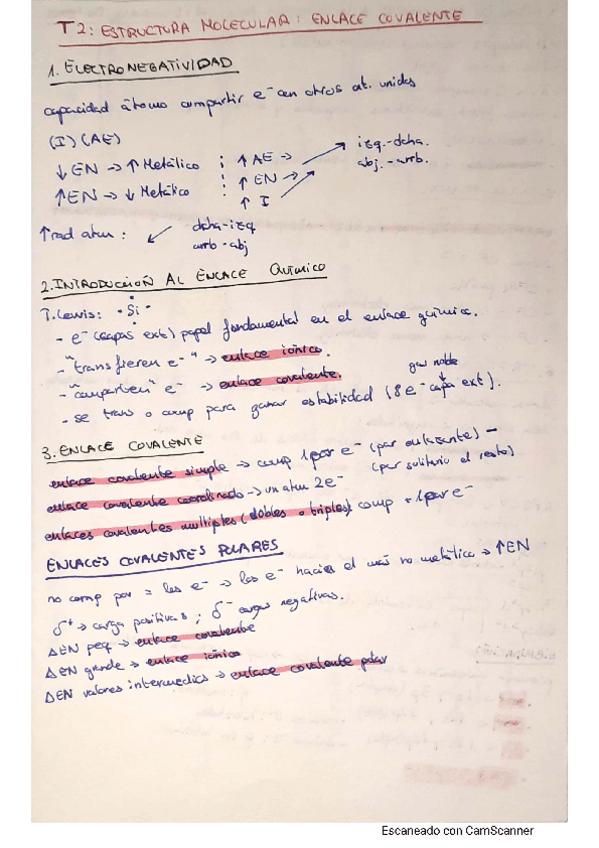 T2: ESTRUCTURA MOLECULAR: ENLACE COVALENTE
1. ELECTRONEGATIVIDAD
capacidad átomo compartir e⁻ con otros at. unidos
(I) (AE)
↓EN → ↑ Metálico ⋮ ↑ AE → izq.-dcha.
↑EN → ↓ Metálico ⋮ ↑ EN → abj.-arrb.
↑ I
↑rad atom : ↙ dcha-izq
arrb-abj
2. INTRODUCCIÓN AL ENLACE QUÍMICO
T. Lewis: · Si ·
- e⁻ (capas ext) papel fundamental en el enlace química.
- "transfieren e⁻" → enlace iónico.
- "comparten" e⁻ → enlace covalente.
gas noble
- se trans o comp para ganar estabilidad (8e⁻ capa ext).
3. ENLACE COVALENTE
enlace covalente simple → comp 1par e⁻ (par enlazante) –
(par solitario el resto)
enlace covalente coordinado → un atm 2e⁻
enlaces covalentes multiples (dobles o triples) comp + 1par e⁻
ENLACES COVALENTES POLARES
no comp por = los e⁻ → los e⁻ hacia el más no metálico → ↑EN
δ⁺ → carga positivas ; δ⁻ cargas negativas.
ΔEN peq → enlace covalente
ΔEN grande → enlace iónico
ΔEN valores intermedios → enlace covalente polar
Escaneado con CamScanner